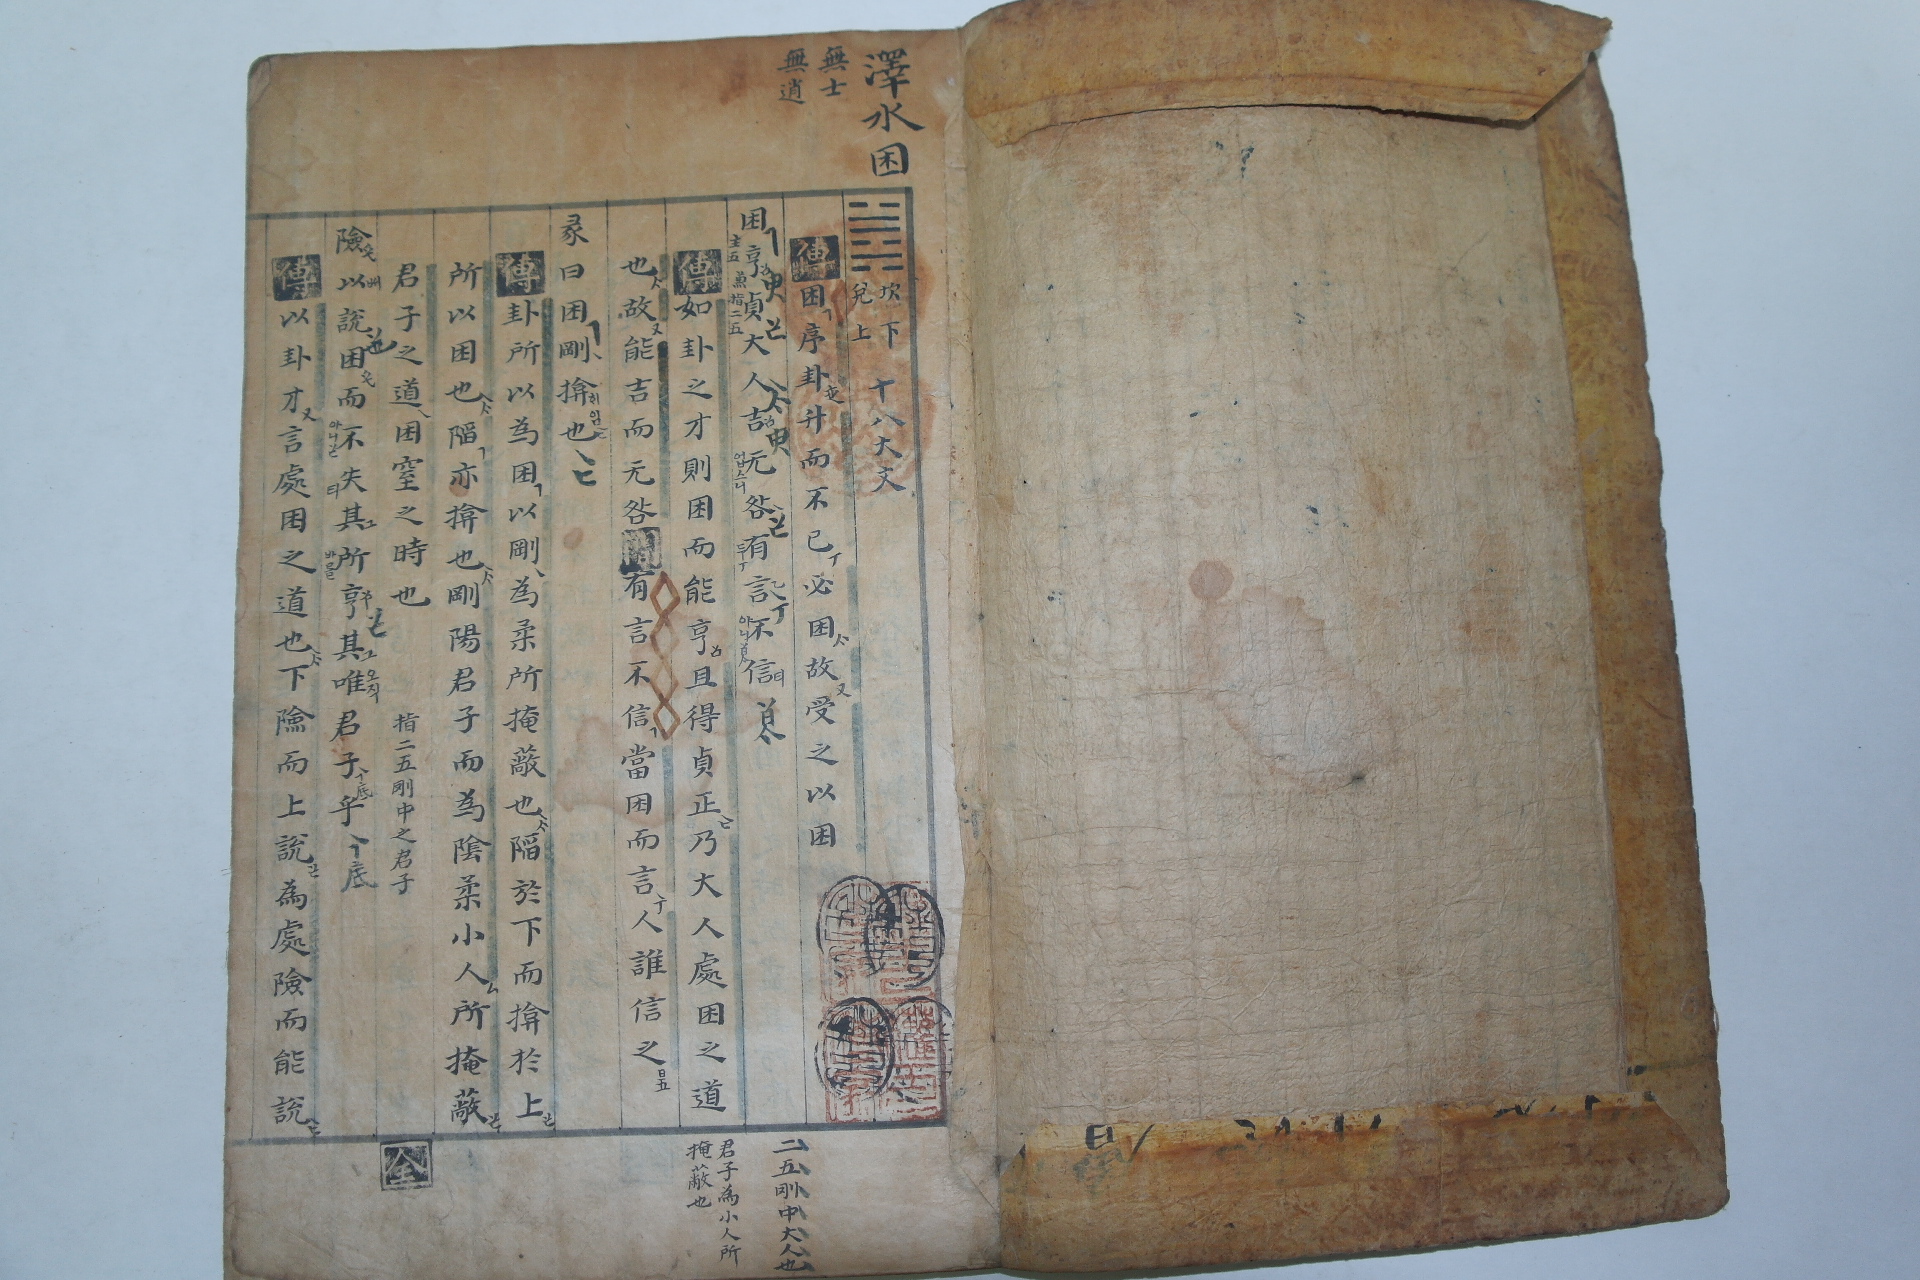 澤水困
無士
無逍
坎下
兌上
十八大文
傳困序卦升而不已必困故受之以困
困亨貞大人吉无咎有言不信
主五
兼指二五
업스니
傳如卦之才則困而能亨且得貞正乃大人處困之道
也故能吉而无咎有言不信當困而言人誰信之
彖曰困剛揜也
傳卦所以為困以剛為柔所掩蔽也陷於下而揜於上
所以困也陷亦揜也剛陽君子而為陰柔小人所掩蔽
君子之道困窒之時也
指二五剛中之君子
險以說困而不失其所亨其唯君子乎
傳以卦才言處困之道也下險而上說為處險而能說
二五剛中大人也
君子為小人所
掩蔽也
全